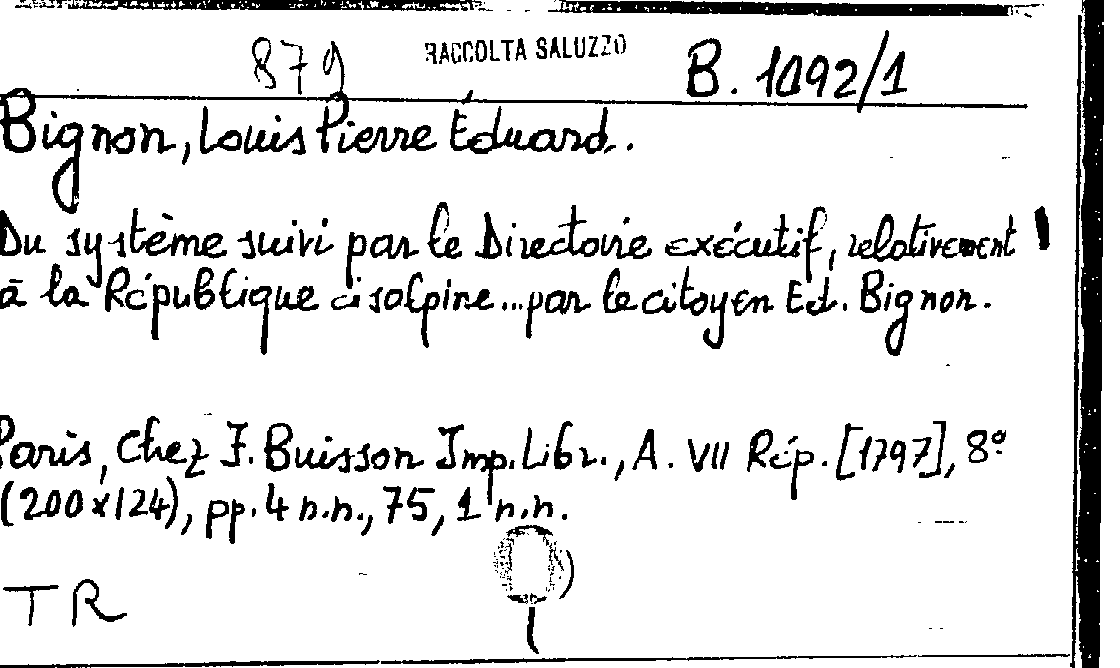 879 RACCOLTA SALUZZO B. 1092/1
Bignon, Louis Pierre Éduard.
Du système suivi par le Directoire exécutif, relativement
à la République cisalpine...par le citoyen Ed. Bignon.
Paris, Chez F. Buisson Imp. Libr., A. VII Rép. [1797], 8º
(200x124), pp. 4 n.n., 75, 1 n.n.
TR